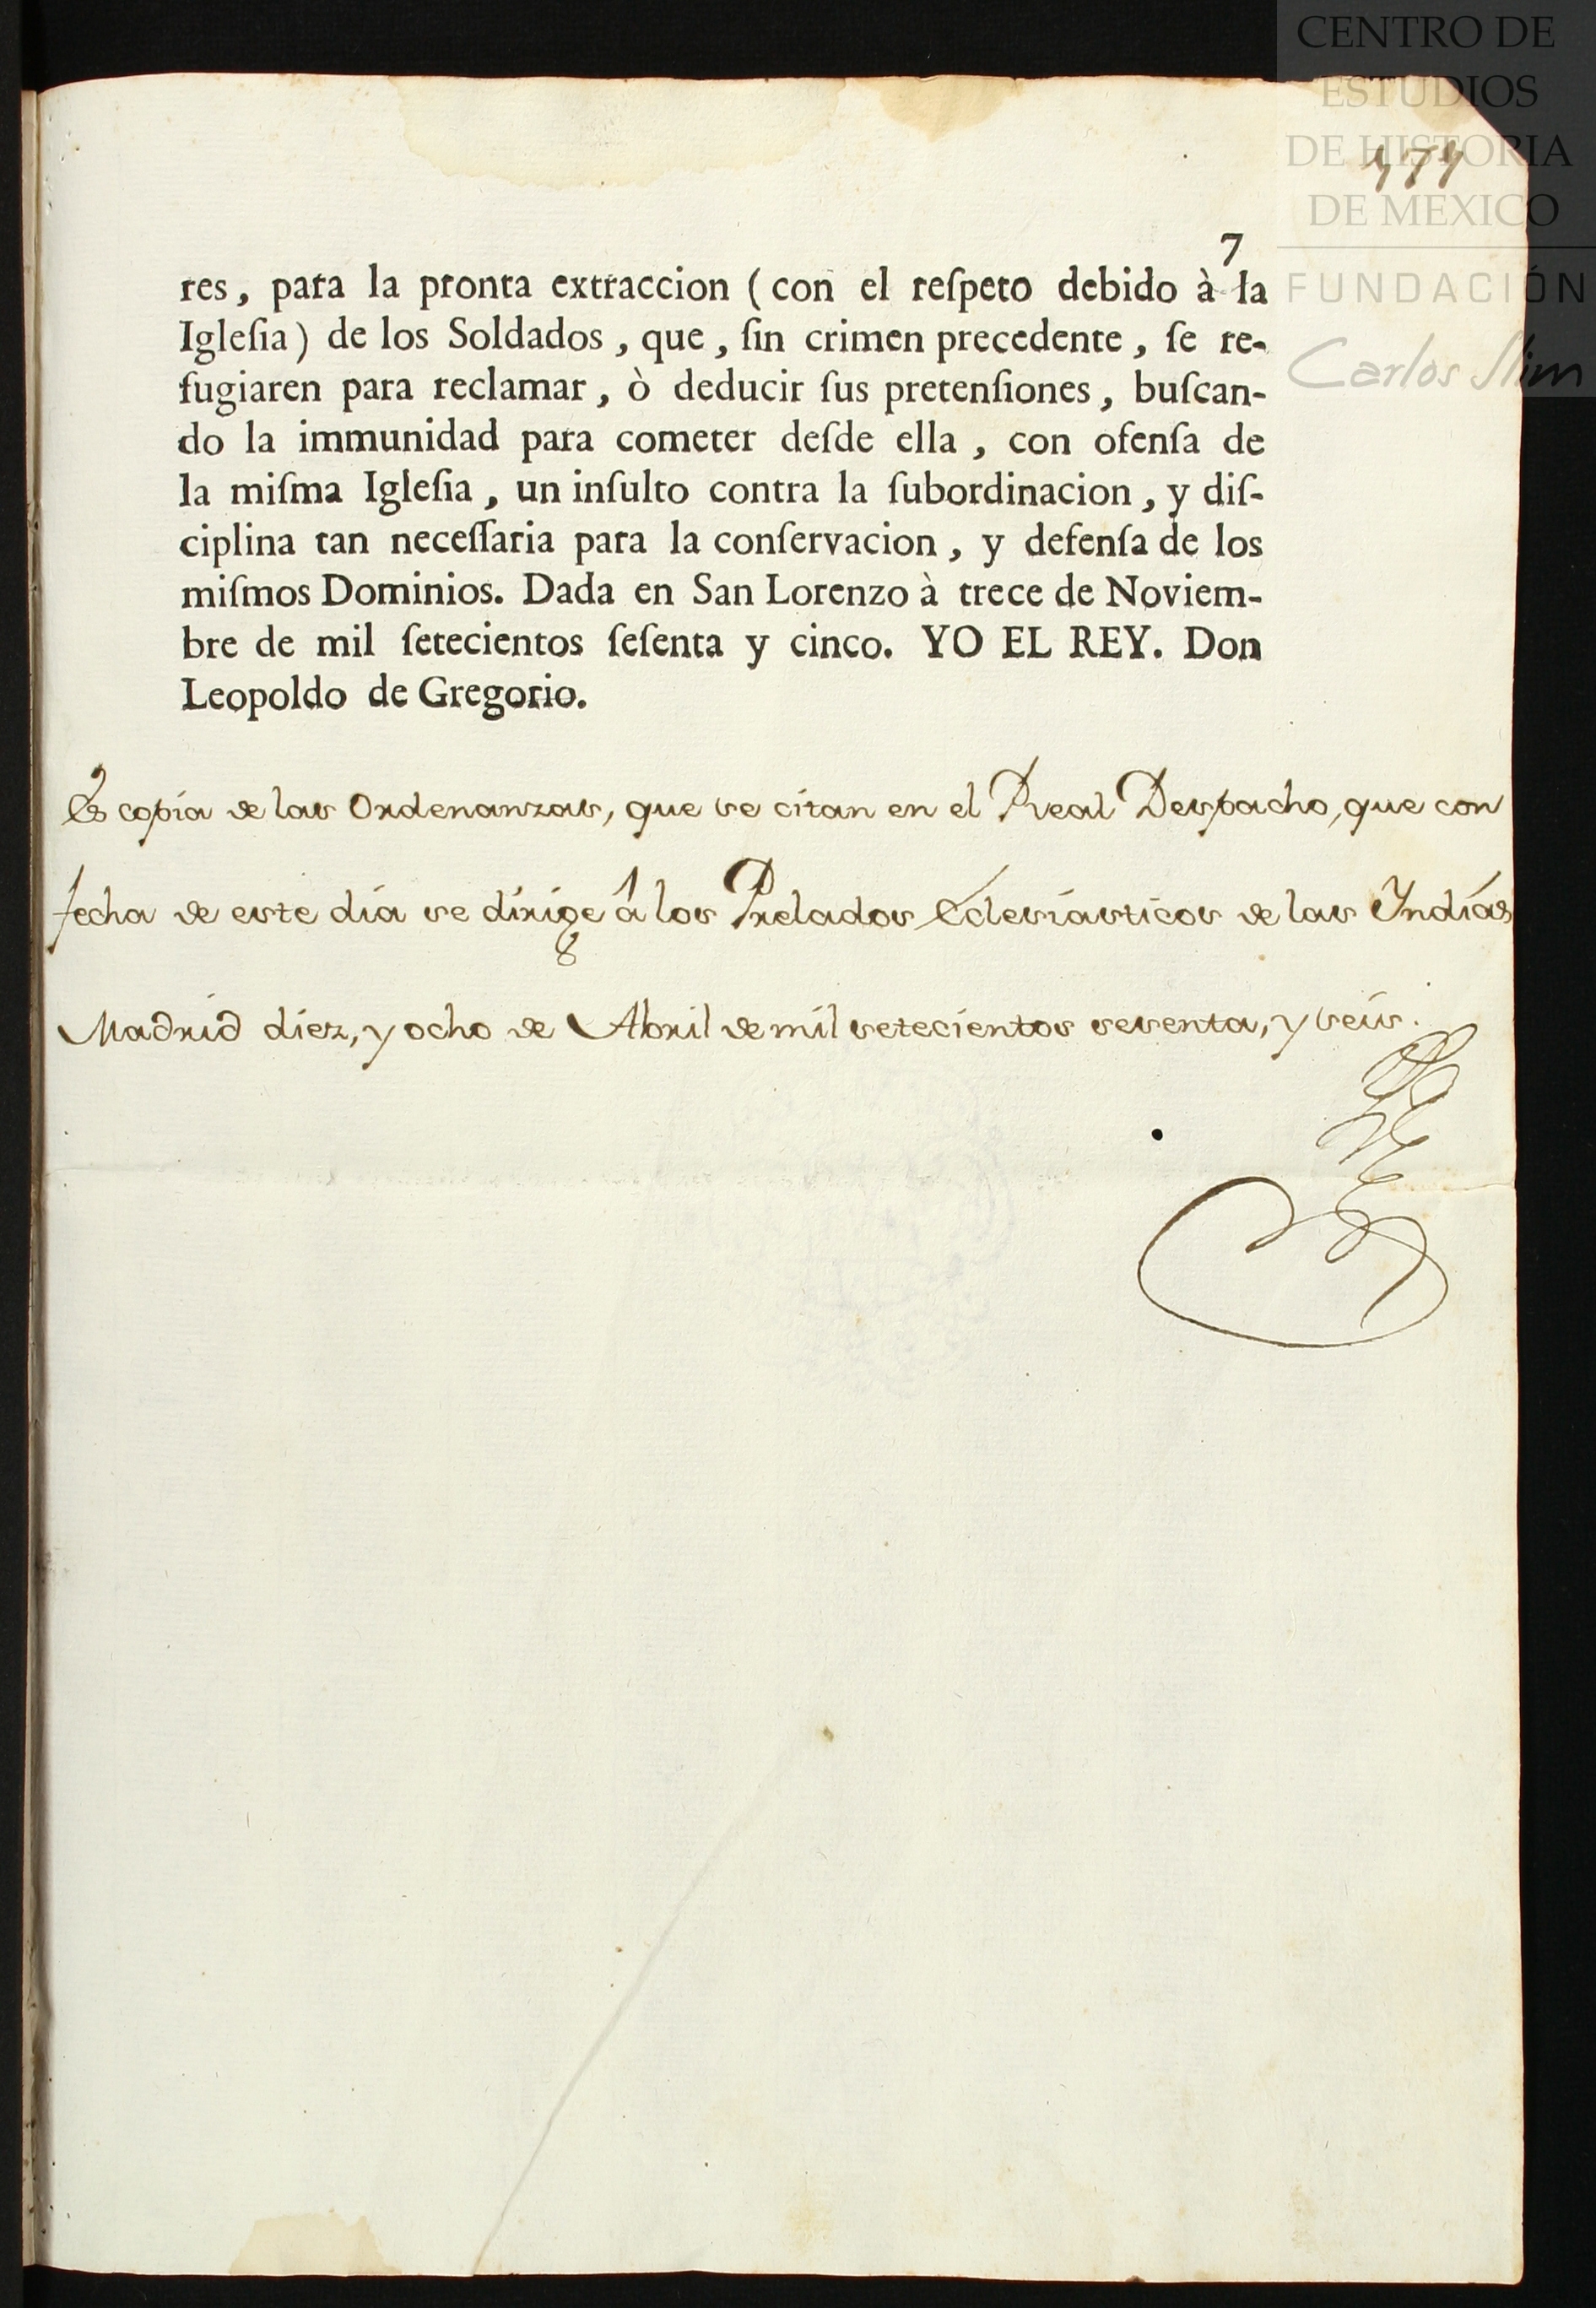 CENTRO DE
ESTUDIOS
DE HISTORIA
DE MEXICO
FUNDACIÓN
Carlos Slim
7
res, para la pronta extraccion (con el reſpeto debido à la
Igleſia) de los Soldados, que, ſin crimen precedente, ſe re-
fugiaren para reclamar, ò deducir ſus pretenſiones, buſcan-
do la immunidad para cometer deſde ella, con ofenſa de
la miſma Igleſia, un inſulto contra la ſubordinacion, y diſ-
ciplina tan neceſſaria para la conſervacion, y defenſa de los
miſmos Dominios. Dada en San Lorenzo à trece de Noviem-
bre de mil ſetecientos ſeſenta y cinco. YO EL REY. Don
Leopoldo de Gregorio.
Es copia de las Ordenanzas, que se citan en el Real Despacho, que con
fecha de este dia se dirige á los Prelados Eclesiasticos de las Yndias
Madrid diez, y ocho de Abril de mil setecientos sesenta, y seis.